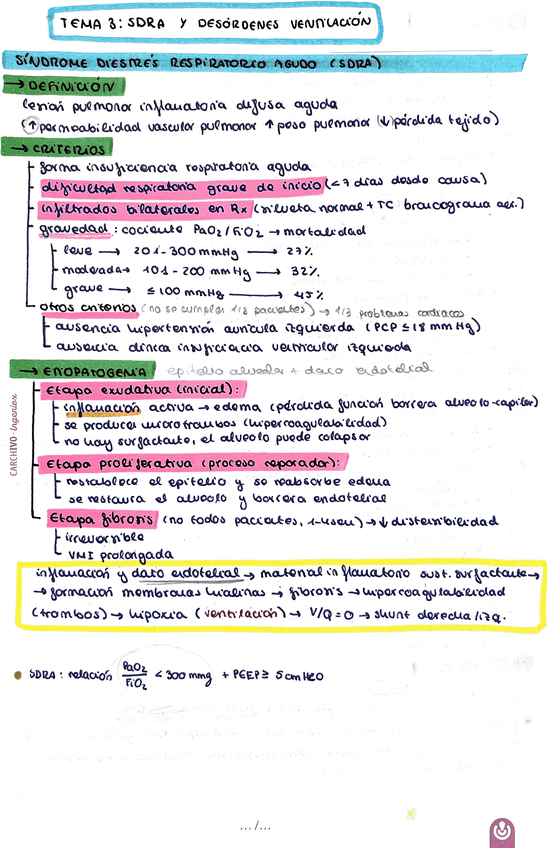 TEMA 3: SDRA Y DESÓRDENES VENTILACIÓN
SÍNDROME DIESTRÉS RESPIRATORIO AGUDO (SDRA)
→ DEFINICIÓN
lesión pulmonar inflamatoria difusa aguda
(↑ permeabilidad vascular pulmonar ↑ peso pulmonar (↓) pérdida tejido)
→ CRITERIOS
forma insuficiencia respiratoria aguda
dificultad respiratoria grave de inicio (< 7 días desde causa)
infiltrados bilaterales en Rx (silueta normal + TC broncograma aér.)
gravedad: cociente PaO2/FiO2 → mortalidad
leve → 201-300 mmHg → 27%
moderada → 101-200 mmHg → 32%
grave → ≤ 100 mmHg → 45%
otros criterios (no se cumplen 1/3 pacientes) → 1/3 problemas cardíacos
ausencia hipertensión aurícula izquierda (PCP ≤ 18 mmHg)
ausencia clínica insuficiencia ventricular izquierda
→ ETIOPATOGENIA epitelio alveolar + daño endotelial
Etapa exudativa (inicial):
inflamación activa → edema (pérdida función barrera alveolo-capilar)
se producen microtrombos (hipercoagulabilidad)
no hay surfactante, el alveolo puede colapsar
Etapa proliferativa (proceso reparador):
restablece el epitelio y se reabsorbe edema
se restaura el alveolo y barrera endotelial
CARCHIVO-Ingenios
Etapa fibrosis (no todos pacientes, 1-4sem) → ↓ distensibilidad
irreversible
VMI prolongada
inflamación y daño endotelial → material inflamatorio sust. surfactante →
→ formación membranas hialinas → fibrosis → hipercoagulabilidad
(trombos) → hipoxia (ventilación) → V/Q = 0 → shunt derecha/izq.
• SDRA: relación PaO2/FiO2 < 300 mmg + PEEP ≥ 5 cmH2O
.../...